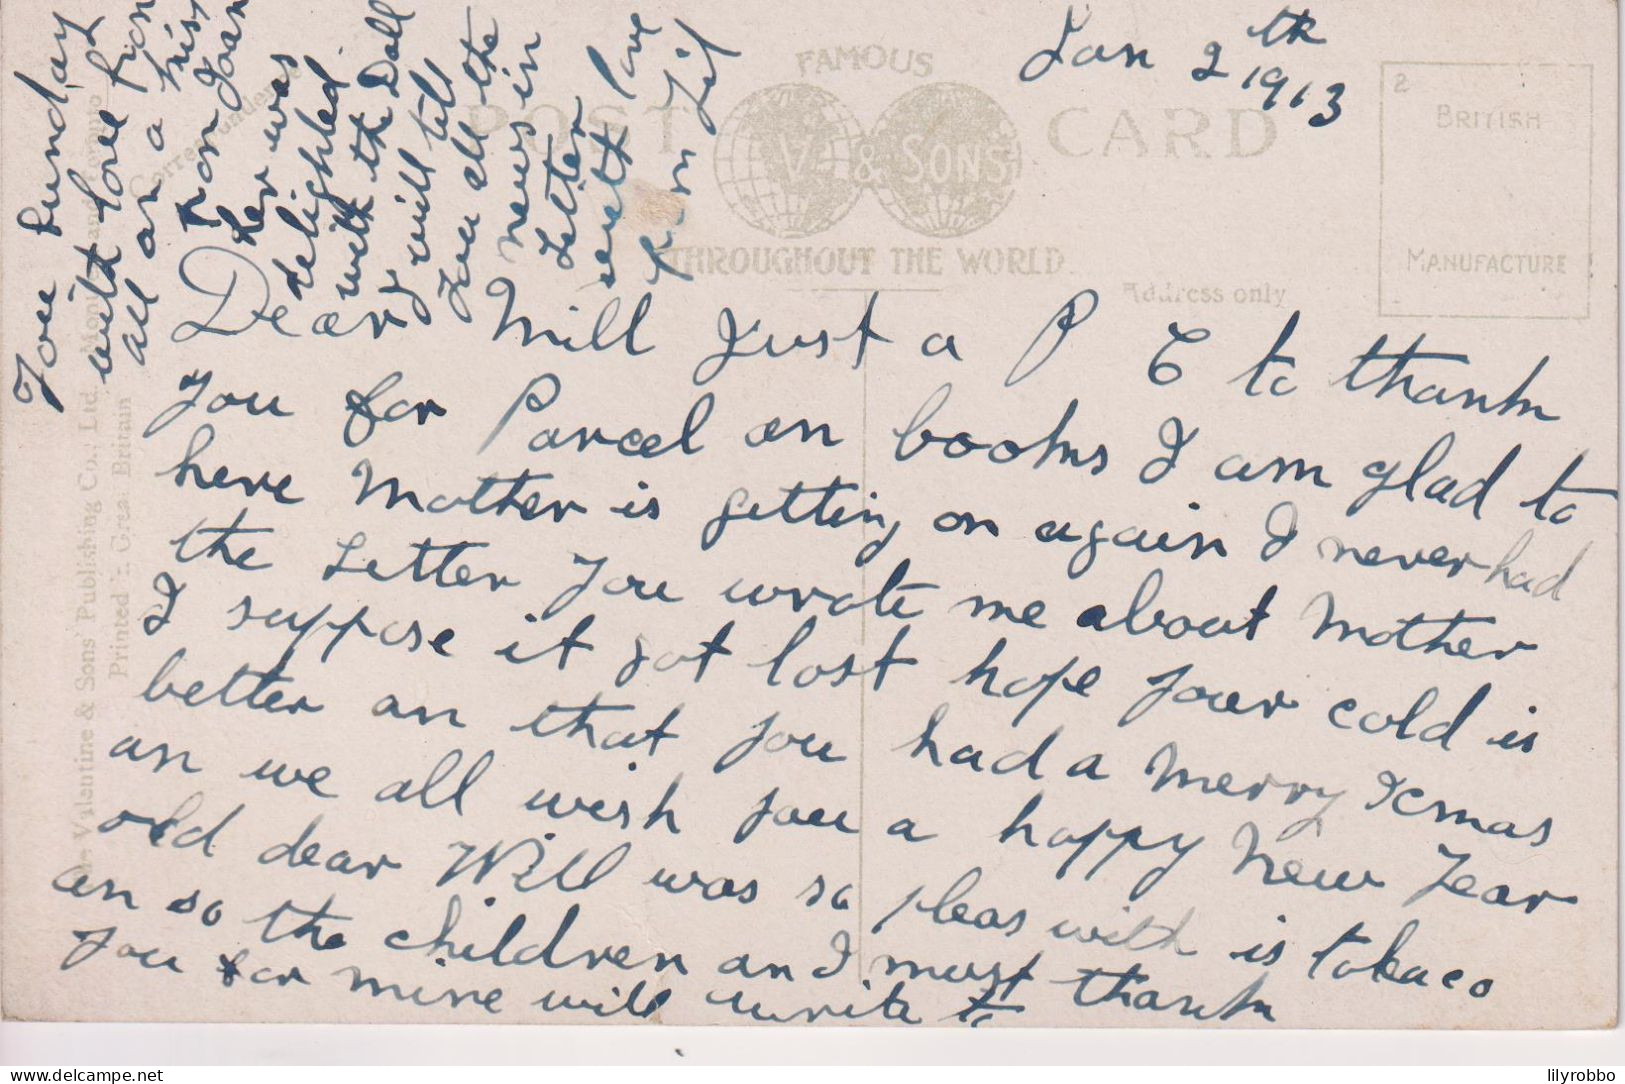 Jan 2th
1913
FAMOUS
POST CARD
V. & SONS
THROUGHOUT THE WORLD
2
BRITISH
MANUFACTURE
Address only
Correspondence
Dear Mill Just a P C to thank
you for Parcel an books I am glad to
here Mother is getting on again I never had
the Letter you wrote me about Mother
I suppose it got lost hope your cold is
better an that you had a Merry Xmas
an we all wish you a happy New Year
old dear Will was so pleas with is tobaco
an so the children an I must thank
you for mine will write to
you Sunday
with love from
all an a kiss
from Joan
her was
delighted
with the Doll
will tell
you all the
news in
Letter
with love
from Lil
Valentine & Sons' Publishing Co., Ltd.
Printed in Great Britain
lilyrobbo